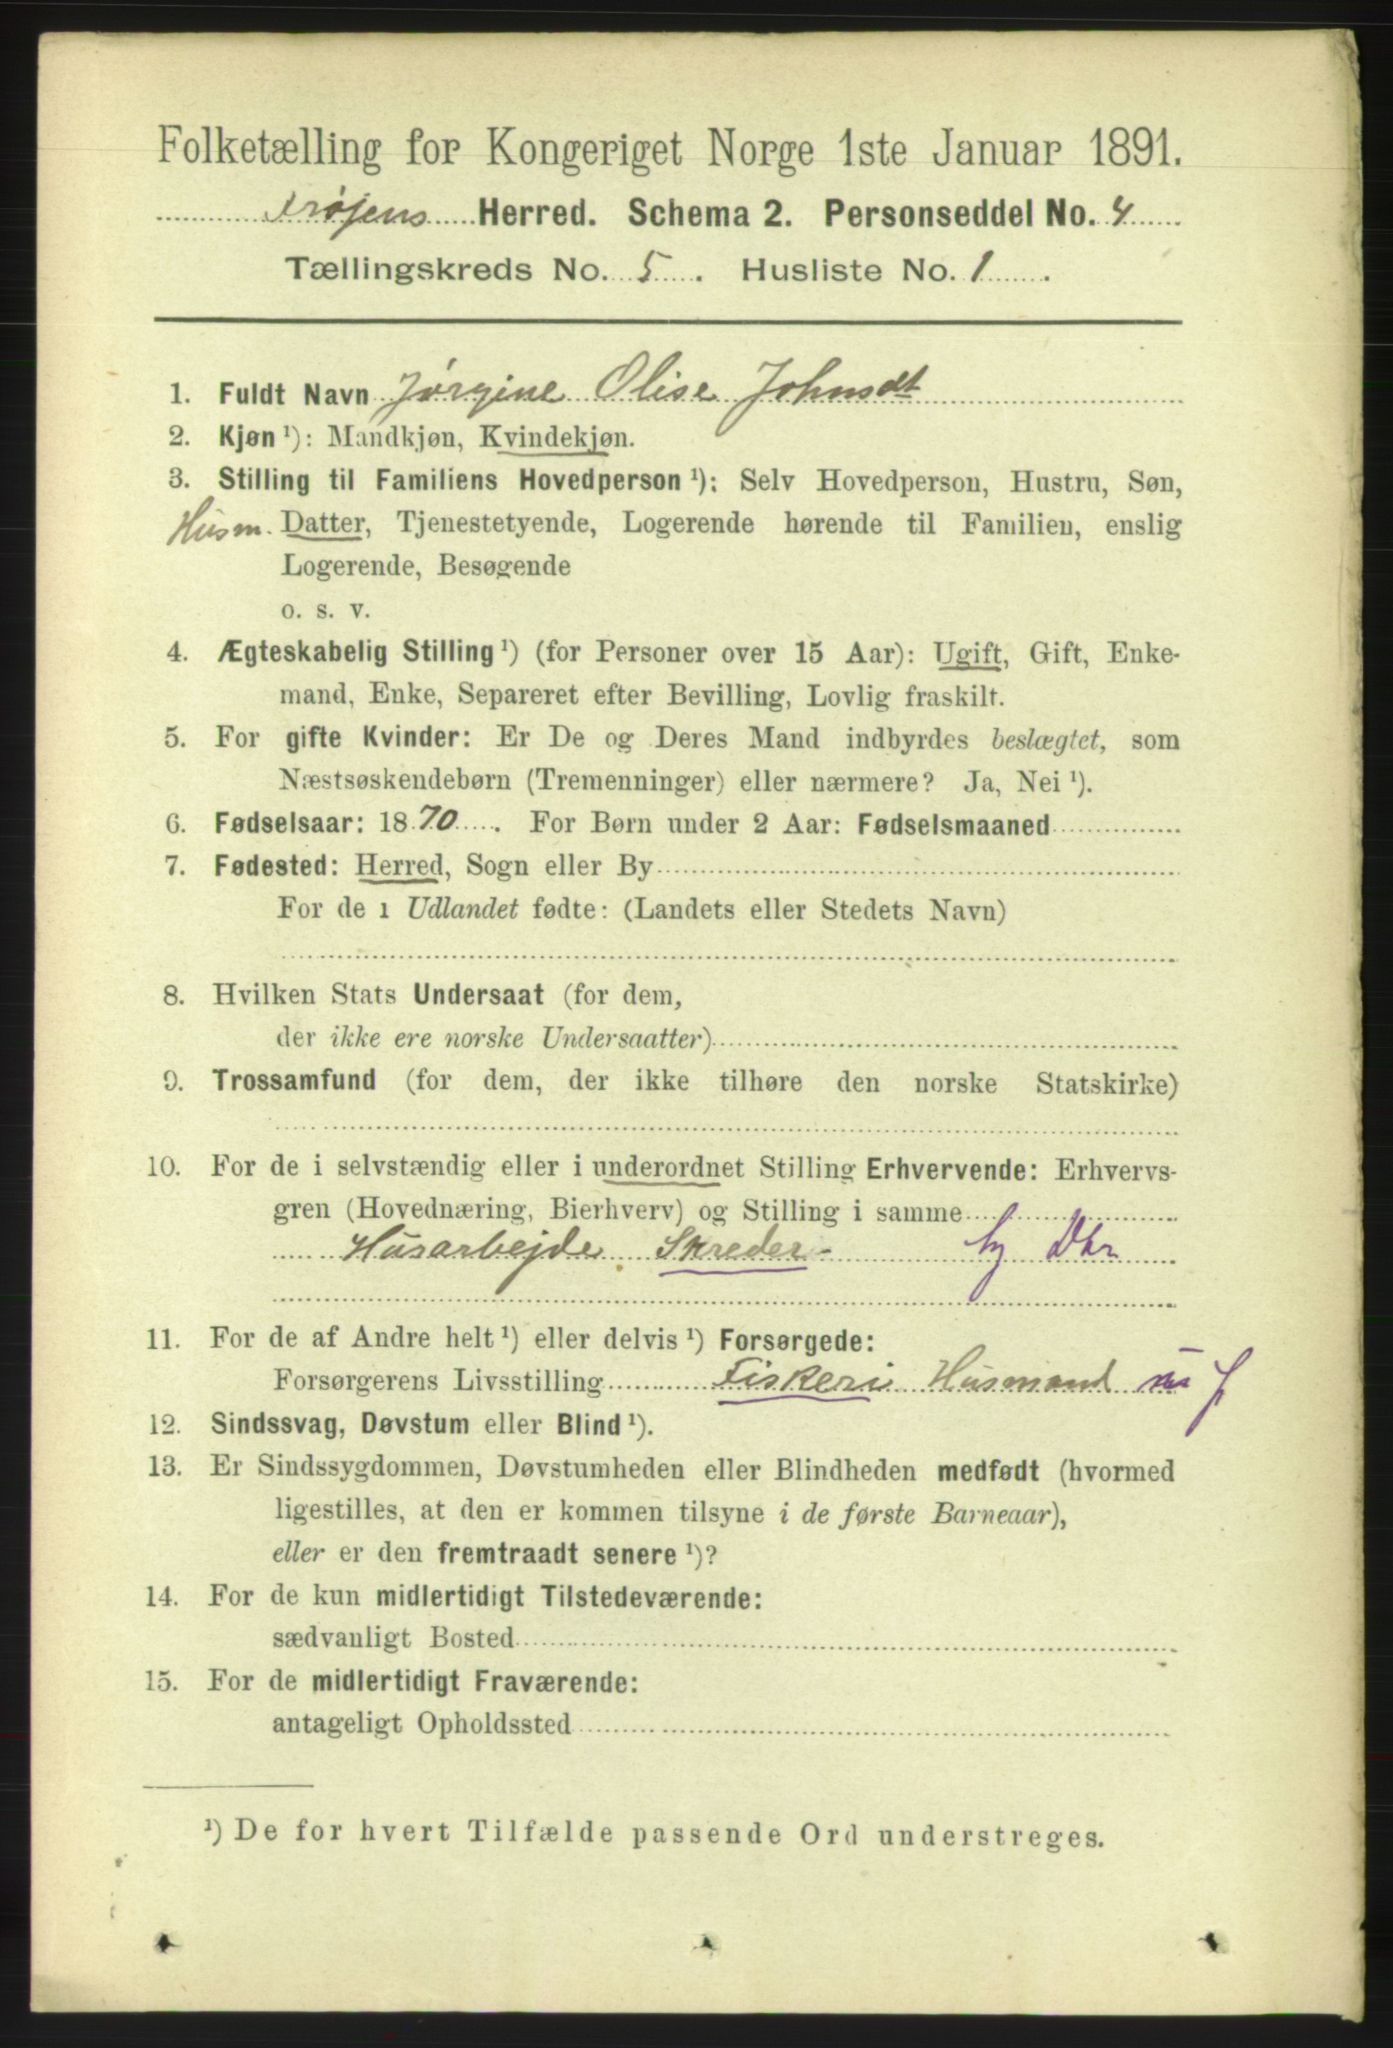 Folketælling for Kongeriget Norge 1ste Januar 1891.
Frøjens Herred. Schema 2. Personseddel No. 4
Tællingskreds No. 5. Husliste No. 1.
1. Fuldt Navn Jørgine Olise Johnsdt
2. Kjøn ¹): Mandkjøn, Kvindekjøn.
3. Stilling til Familiens Hovedperson ¹): Selv Hovedperson, Hustru, Søn,
Husm. Datter, Tjenestetyende, Logerende hørende til Familien, enslig
Logerende, Besøgende
o. s. v.
4. Ægteskabelig Stilling ¹) (for Personer over 15 Aar): Ugift, Gift, Enke-
mand, Enke, Separeret efter Bevilling, Lovlig fraskilt.
5. For gifte Kvinder: Er De og Deres Mand indbyrdes beslægtet, som
Næstsøskendebørn (Tremenninger) eller nærmere? Ja, Nei ¹).
6. Fødselsaar: 1870. For Børn under 2 Aar: Fødselsmaaned
7. Fødested: Herred, Sogn eller By
For de i Udlandet fødte: (Landets eller Stedets Navn)
8. Hvilken Stats Undersaat (for dem,
der ikke ere norske Undersaatter)
9. Trossamfund (for dem, der ikke tilhøre den norske Statskirke)
10. For de i selvstændig eller i underordnet Stilling Erhvervende: Erhvervs-
gren (Hovednæring, Bierhverv) og Stilling i samme
Husarbejde. Skreder-
11. For de af Andre helt ¹) eller delvis ¹) Forsørgede:
Forsørgerens Livsstilling Fiskeri Husmand
12. Sindssvag, Døvstum eller Blind ¹).
13. Er Sindssygdommen, Døvstumheden eller Blindheden medfødt (hvormed
ligestilles, at den er kommen tilsyne i de første Barneaar),
eller er den fremtraadt senere ¹)?
14. For de kun midlertidigt Tilstedeværende:
sædvanligt Bosted
15. For de midlertidigt Fraværende:
antageligt Opholdssted
¹) De for hvert Tilfælde passende Ord understreges.